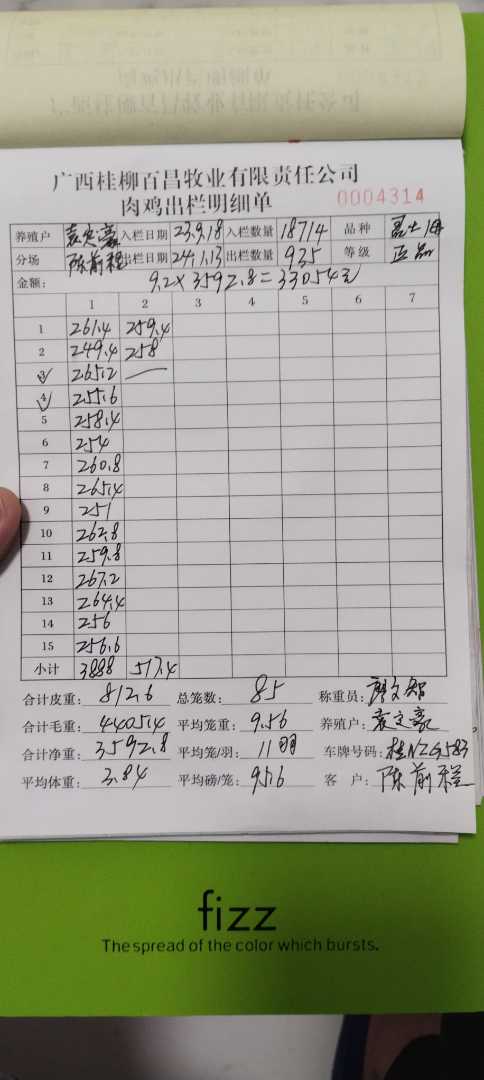 广西桂柳百昌牧业有限责任公司
肉鸡出栏明细单 0004314
养殖户 袁文豪 入栏日期 23.9.18 入栏数量 18714 品种
分场 陈前程 出栏日期 24.1.13 出栏数量 935 等级 正品
金额: 9.2×3592.8=33054元
1 2 3 4 5 6 7
1 261.4 259.4
2 249.4 258
3 265.2 —
4 255.6
5 258.4
6 254
7 260.8
8 265.4
9 251
10 262.8
11 259.8
12 267.2
13 264.4
14 256
15 256.6
小计 3888 517.4
合计皮重: 812.6 总笼数: 85 称重员: 文智
合计毛重: 4405.4 平均笼重: 9.56 养殖户: 袁文豪
合计净重: 3592.8 平均笼/羽: 11羽 车牌号码: 桂NZG583
平均体重: 3.84 平均磅/笼: 95.6 客 户: 陈前程
fizz
The spread of the color which bursts.